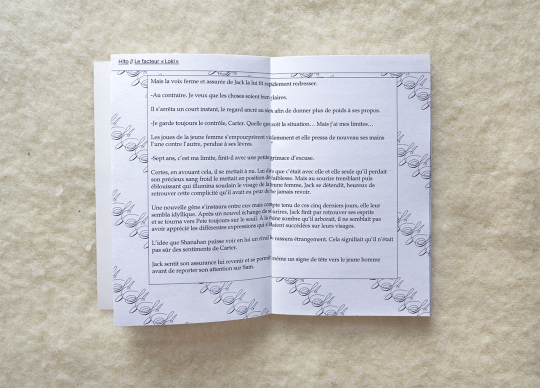 Hito // Le facteur « Loki »
Mais la voix ferme et assurée de Jack la lui fit rapidement redresser.
-Au contraire. Je veux que les choses soient claires.
Il s'arrêta un court instant, le regard ancré au sien afin de donner plus de poids à ses propos.
-Je garde toujours le contrôle, Carter. Quelle que soit la situation… Mais j'ai mes limites…
Les joues de la jeune femme s'empourprèrent violemment et elle pressa de nouveau ses mains
l'une contre l'autre, pendue à ses lèvres.
-Sept ans, c'est ma limite, finit-il avec une petite grimace d'excuse.
Certes, en avouant cela, il se mettait à nu. Lui dire que c'était avec elle et elle seule qu'il perdait
son précieux sang froid le mettait en position de faiblesse. Mais au sourire tremblant puis
éblouissant qui illumina soudain le visage de la jeune femme, Jack se détendit, heureux de
retrouver cette complicité qu'il avait eu peur de ne jamais revoir.
Une nouvelle gêne s'instaura entre eux mais compte tenu de ces cinq derniers jours, elle leur
sembla idyllique. Après un nouvel échange de sourires, Jack finit par retrouver ses esprits
et se tourna vers Pete toujours sur le seuil. À la mine sombre qu'il arborait, il ne semblait pas
avoir apprécié les différentes expressions qui s'étaient succédées sur leurs visages.
L'idée que Shanahan puisse voir en lui un rival le rassura étrangement. Cela signifiait qu'il n'était
pas sûr des sentiments de Carter.
Jack sentit son assurance lui revenir et se permit même un signe de tête vers le jeune homme
avant de reporter son attention sur Sam.